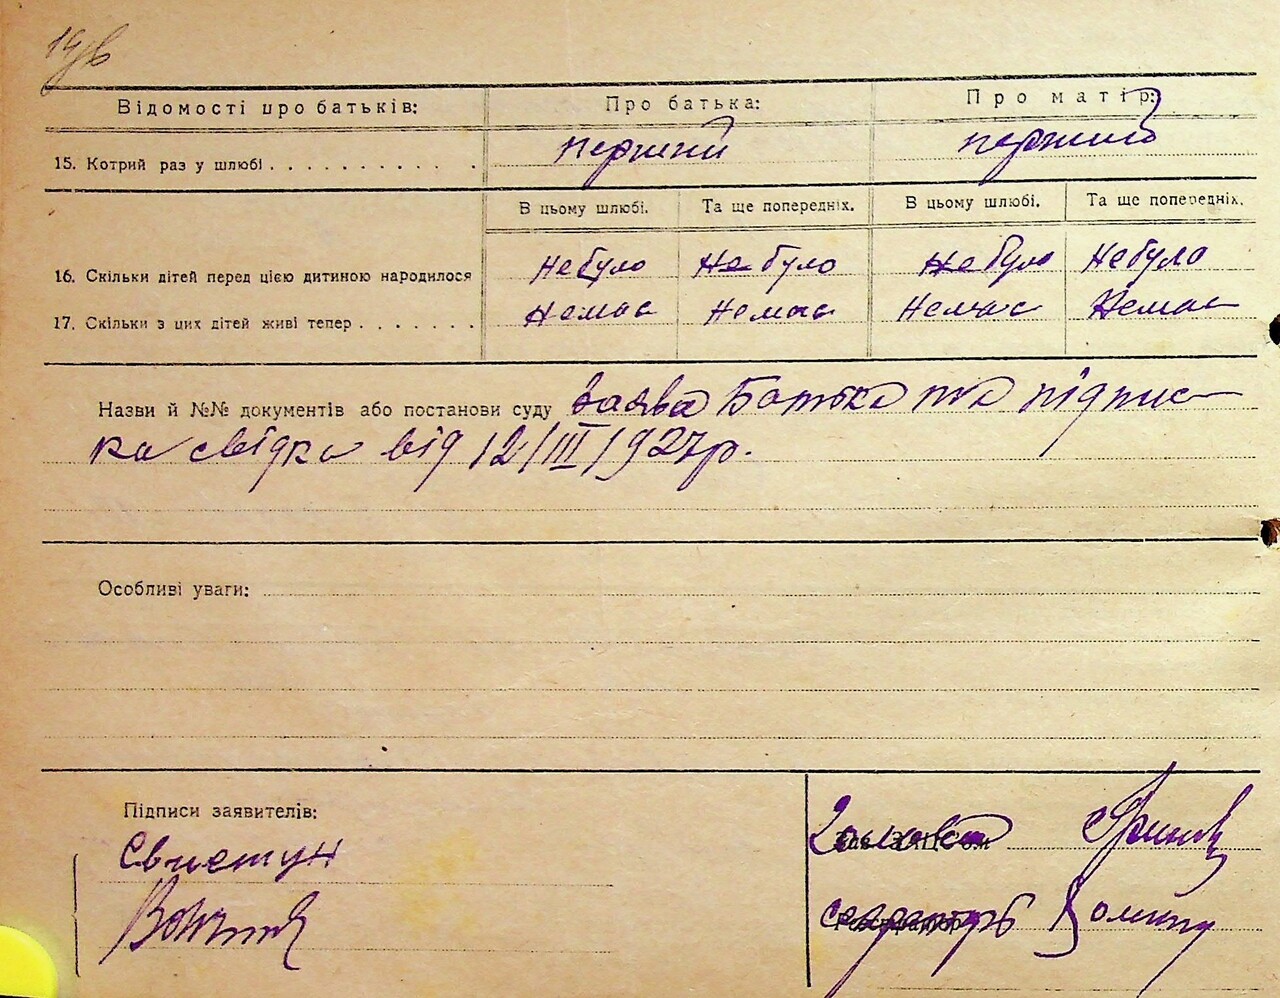 Відомості про батьків: Про батька: Про матір:
15. Котрий раз у шлюбі . . . . . . . . . . . перший перший
В цьому шлюбі. Та ще попередніх. В цьому шлюбі. Та ще попередніх.
16. Скільки дітей перед цією дитиною народилося Небуло Не було Не було Небуло
17. Скільки з цих дітей живі тепер . . . . . . . Немає Немає Немає Немає
Назви й №№ документів або постанови суду Заява Батька та підпис
ка свідка від 12/III/1927р.
Особливі уваги:
Підписи заявителів:
Свистун
Голова
секретарь